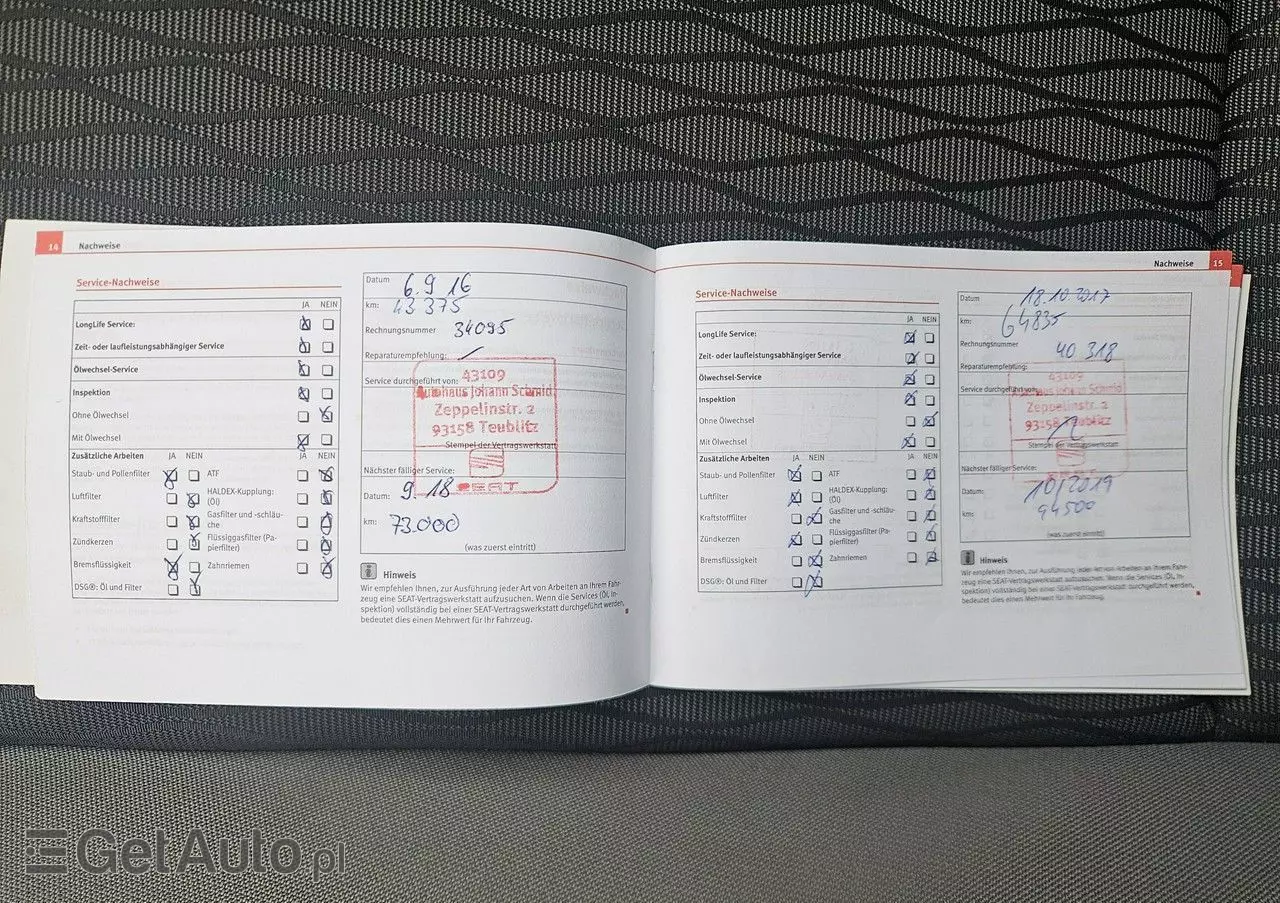 14 Nachweise
Service-Nachweise
JA NEIN
LongLife Service:
Zeit- oder laufleistungsabhängiger Service
Ölwechsel-Service
Inspektion
Ohne Ölwechsel
Mit Ölwechsel
Zusätzliche Arbeiten JA NEIN JA NEIN
Staub- und Pollenfilter ATF
Luftfilter HALDEX-Kupplung:
(Öl)
Kraftstofffilter Gasfilter und -schläu-
che
Zündkerzen Flüssiggasfilter (Pa-
pierfilter)
Bremsflüssigkeit Zahnriemen
DSG®: Öl und Filter
Datum 6.9 16
km: 43 375
Rechnungsnummer 34095
Reparaturempfehlung:
Service durchgeführt von:
43109
Autohaus Johann Schmid
Zeppelinstr. 2
93158 Teublitz
Stempel der Vertragswerkstatt
Nächster fälliger Service:
SEAT
Datum: 9 18
km: 73.000
(was zuerst eintritt)
Hinweis
Wir empfehlen Ihnen, zur Ausführung jeder Art von Arbeiten an Ihrem Fahr-
zeug eine SEAT-Vertragswerkstatt aufzusuchen. Wenn die Services (Öl, In-
spektion) vollständig bei einer SEAT-Vertragswerkstatt durchgeführt werden,
bedeutet dies einen Mehrwert für Ihr Fahrzeug.
Nachweise 15
Service-Nachweise
JA NEIN
LongLife Service:
Zeit- oder laufleistungsabhängiger Service
Ölwechsel-Service
Inspektion
Ohne Ölwechsel
Mit Ölwechsel
Zusätzliche Arbeiten JA NEIN JA NEIN
Staub- und Pollenfilter ATF
Luftfilter HALDEX-Kupplung:
(Öl)
Kraftstofffilter Gasfilter und -schläu-
che
Zündkerzen Flüssiggasfilter (Pa-
pierfilter)
Bremsflüssigkeit Zahnriemen
DSG®: Öl und Filter
Datum 18.10.2017
km: 64835
Rechnungsnummer 40 318
Reparaturempfehlung:
Service durchgeführt von:
43109
Autohaus Johann Schmid
Zeppelinstr. 2
93158 Teublitz
Stempel der Vertragswerkstatt
Nächster fälliger Service:
Datum: 10/2019
km: 94500
(was zuerst eintritt)
Hinweis
Wir empfehlen Ihnen, zur Ausführung jeder Art von Arbeiten an Ihrem Fahr-
zeug eine SEAT-Vertragswerkstatt aufzusuchen. Wenn die Services (Öl, In-
spektion) vollständig bei einer SEAT-Vertragswerkstatt durchgeführt werden,
bedeutet dies einen Mehrwert für Ihr Fahrzeug.
GetAuto.pl